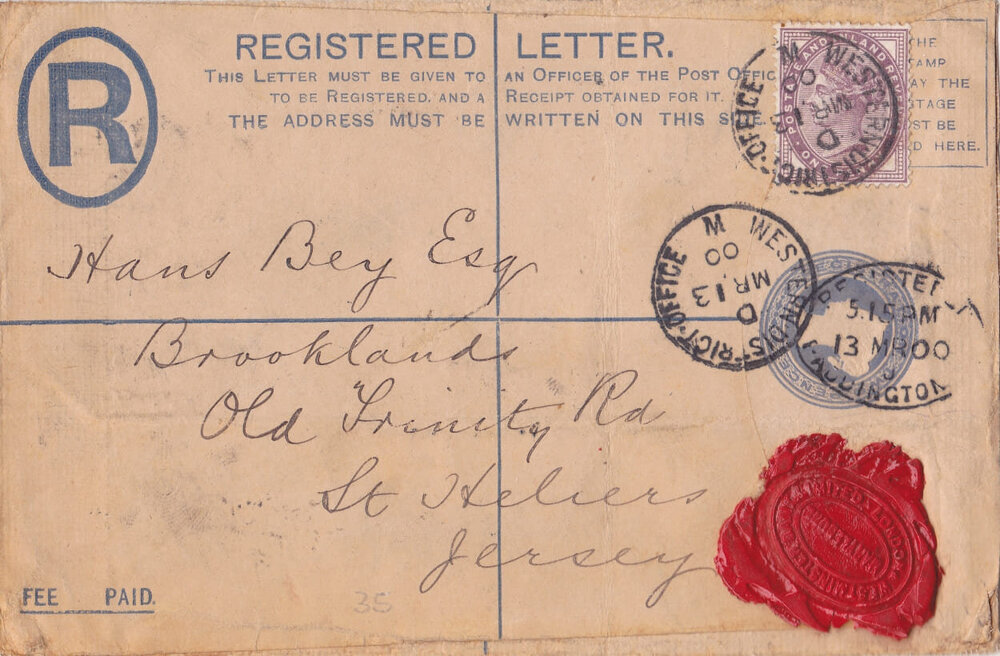 R
REGISTERED LETTER.
THIS LETTER MUST BE GIVEN TO AN OFFICER OF THE POST OFFIC
TO BE REGISTERED, AND A RECEIPT OBTAINED FOR IT.
THE ADDRESS MUST BE WRITTEN ON THIS SIDE.
THE
STAMP
AY THE
STAGE
ST BE
D HERE.
POSTAGE AND INLAND REVENUE
WESTERN DISTRICT OFFICE
M
00
MR 13
D
WESTERN DISTRICT OFFICE
M
00
MR 13
D
REGISTE
5.15PM
13 MR 00
PADDINGTON
Hans Bey Esq
Brooklands
Old Trinity Rd
St Heliers
Jersey
FEE PAID.
35